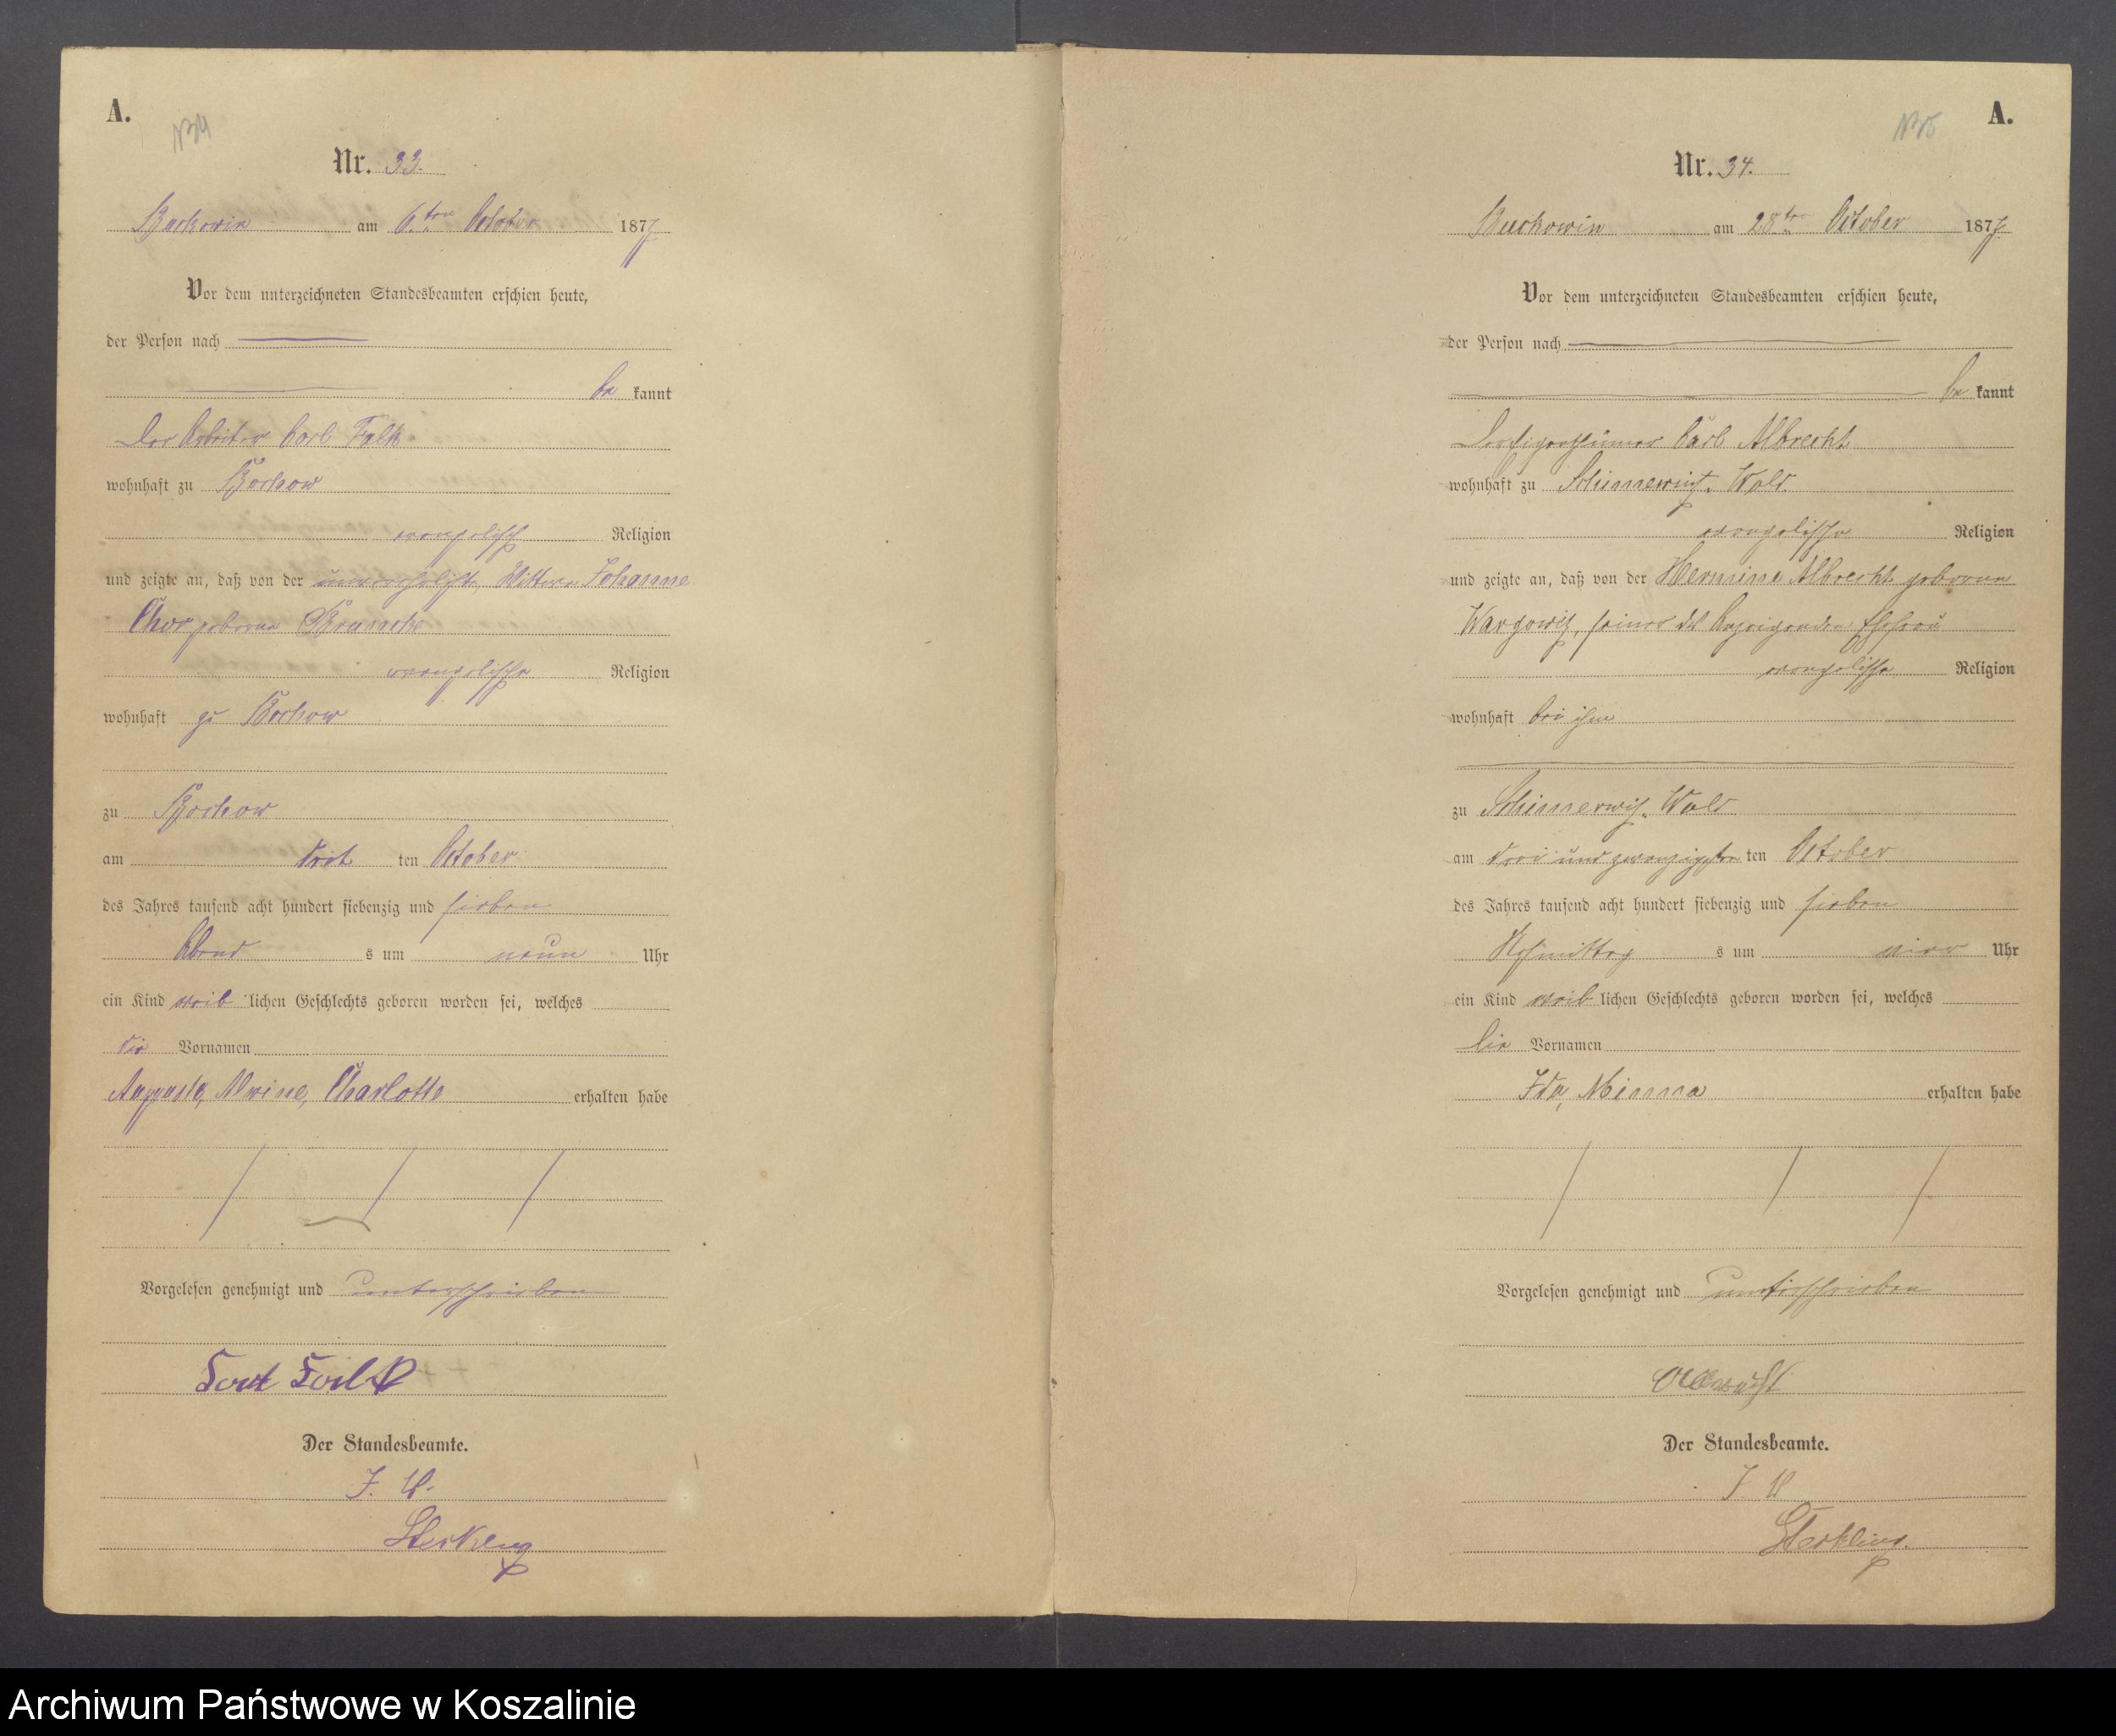 A.
Nr. 33.
Buckowin am 6ten October 1877
Vor dem unterzeichneten Standesbeamten erschien heute,
der Person nach
be kannt
Der Arbeiter Carl Falk
wohnhaft zu Bochow
evangelisch Religion
und zeigte an, daß von der unverehelichte Johanne
Chor geborne
evangelische Religion
wohnhaft zu Bochow
zu Bochow
am ten October
des Jahres tausend acht hundert siebenzig und sieben
Abend s um neun Uhr
ein Kind weib lichen Geschlechts geboren worden sei, welches
die Vornamen
Auguste, Alwine, Charlotte erhalten habe
Vorgelesen genehmigt und unterschrieben
Der Standesbeamte.
J. V.
A.
Nr. 34.
Buckowin am 28ten October 1877
Vor dem unterzeichneten Standesbeamten erschien heute,
der Person nach
be kannt
Der Eigenthümer Carl Albrecht
wohnhaft zu Schimerwitz. Wald
evangelische Religion
und zeigte an, daß von der Hermine Albrecht geborne
Wargowitz, seiner des Anzeigenden Ehefrau
evangelische Religion
wohnhaft bei ihm
zu Schimerwitz. Wald
am drei und zwanzigsten ten October
des Jahres tausend acht hundert siebenzig und sieben
Nachmittag s um vier Uhr
ein Kind weib lichen Geschlechts geboren worden sei, welches
die Vornamen
Ida, Minna erhalten habe
Vorgelesen genehmigt und unterschrieben
Albrecht
Der Standesbeamte.
J. V.
Archiwum Państwowe w Koszalinie